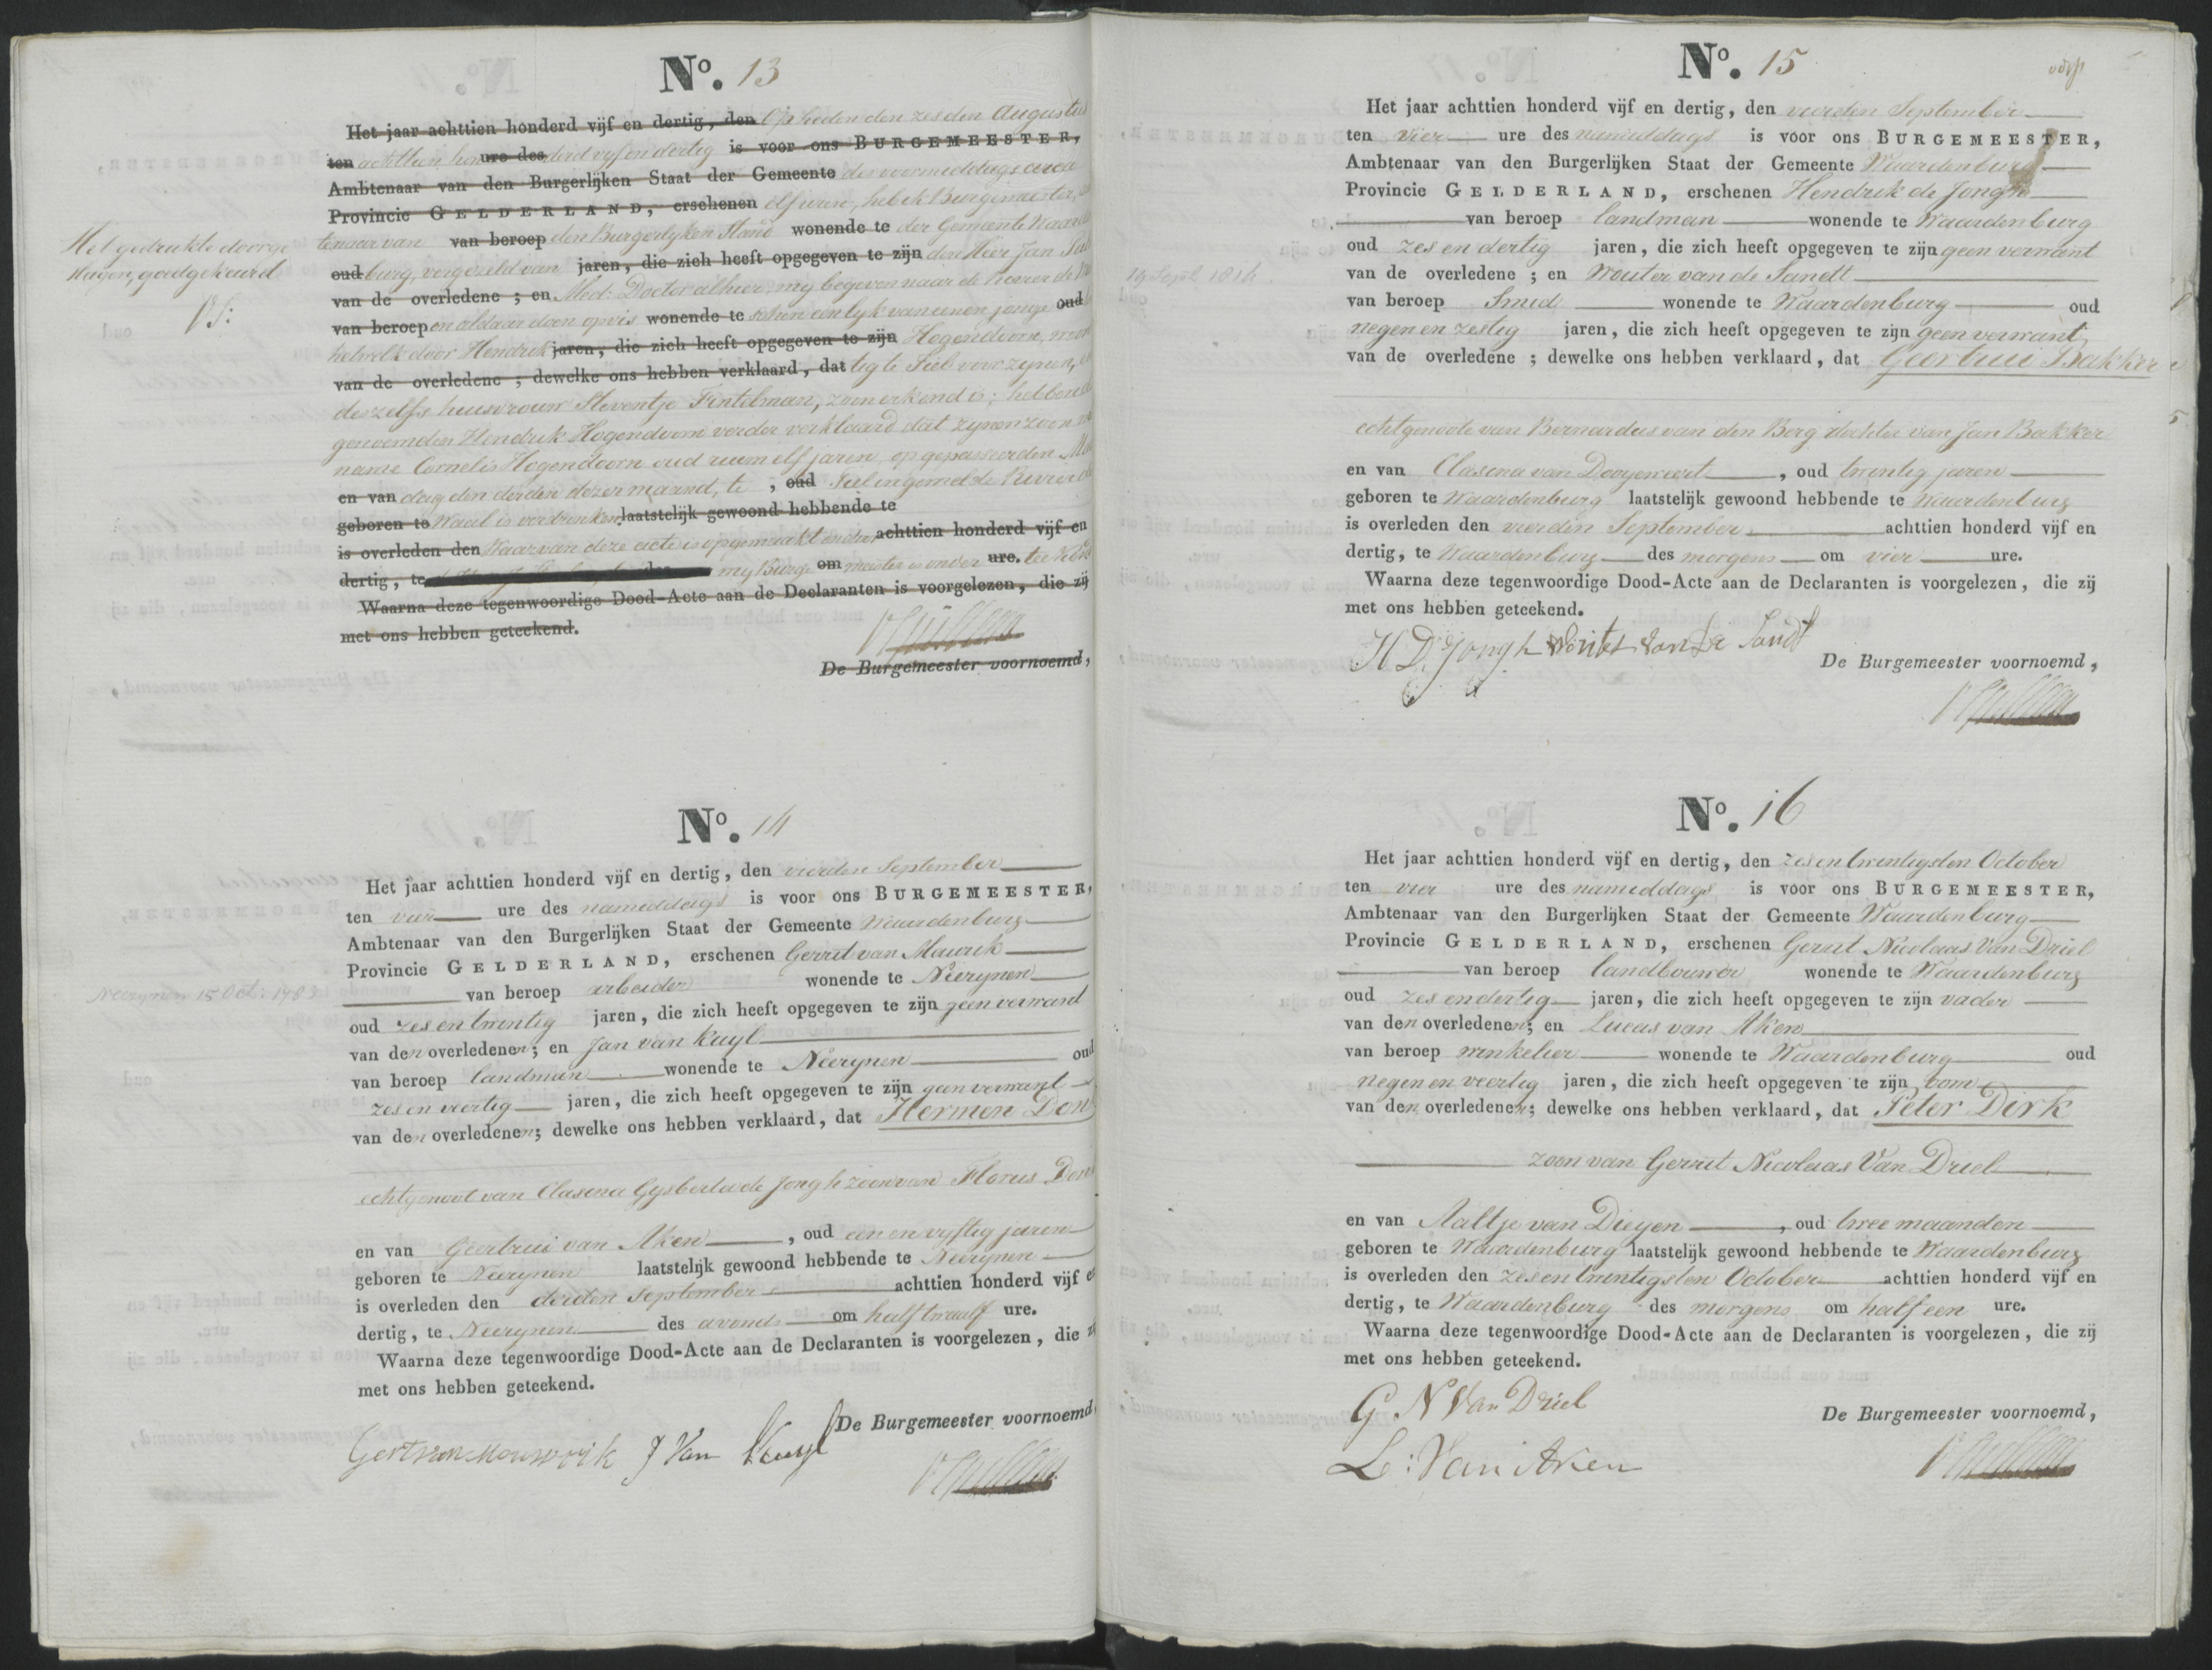 No. 13
Het jaar achttien honderd vijf en dertig, den Op heden den zesden Augustus
ten achttien hon ure des derd vijf en dertig is voor ons BURGEMEESTER,
Ambtenaar van den Burgerlijken Staat der Gemeente des voormiddags circa
Provincie GELDERLAND, erschenen elf uren, heb ik Burgemeester,
tenaar van van beroep den Burgerlyken Stand wonende te der Gemeente Waarden
oud burg, vergezeld van jaren, die zich heeft opgegeven te zijn den Heer Jan
van de overledene; en Med: Doctor alhier my begeven naar de
van beroep en aldaar doen opvis wonende te schen een lyk van eenen jonge oud
hetwelk door Hendrik jaren, die zich heeft opgegeven te zijn Hogendoorn, woon
van de overledene; dewelke ons hebben verklaard, dat tig te Tiel voor zynen,
deszelfs huisvrouw Steventje Fintelman, zoon erkend is; hebbende
genoemden Hendrik Hogendoorn verder verklaard dat zynen zoon
name Cornelis Hogendoorn oud ruim elf jaren, op gepasseerden Maan
en van dag den derden dezer maand, te , oud Tiel in gemelde Rivier de
geboren te Waal is verdronken laatstelijk gewoond hebbende te
is overleden den Waarvan deze acte is opgemaakt en door achttien honderd vijf en
dertig, te des my Burge om meester is onder ure. teekend
Waarna deze tegenwoordige Dood-Acte aan de Declaranten is voorgelezen, die zij
met ons hebben geteekend.
De Burgemeester voornoemd,
Het gedrukte doorge
slagen, goedgekeurd
No. 14
Het jaar achttien honderd vijf en dertig, den vierden September
ten vier ure des namiddags is voor ons BURGEMEESTER,
Ambtenaar van den Burgerlijken Staat der Gemeente Waardenburg
Provincie GELDERLAND, erschenen Gerrit van Mourik
van beroep arbeider wonende te Neerynen
Neerynen 15 Oct: 1783
oud zes en twintig jaren, die zich heeft opgegeven te zijn geen verwand
van den overledenen; en Jan van Kuyl
van beroep landman wonende te Neerynen oud
zes en veertig jaren, die zich heeft opgegeven te zijn geen verwant
van den overledenen; dewelke ons hebben verklaard, dat Hermen Don
echtgenoot van Clasena Gysberta de Jongh zoon van Florus Don
en van Geertrui van Aken, oud een en vyftig jaren
geboren te Neerynen laatstelijk gewoond hebbende te Neerynen
is overleden den derden September achttien honderd vijf en
dertig, te Neerynen des avonds om half twaalf ure.
Waarna deze tegenwoordige Dood-Acte aan de Declaranten is voorgelezen, die zij
met ons hebben geteekend.
De Burgemeester voornoemd,
Gert van Mouwrik J Van Kuyl
No. 15
Het jaar achttien honderd vijf en dertig, den vierden September
ten vier ure des namiddags is voor ons BURGEMEESTER,
Ambtenaar van den Burgerlijken Staat der Gemeente Waardenburg
Provincie GELDERLAND, erschenen Hendrik de Jongh
van beroep landman wonende te Waardenburg
oud zes en dertig jaren, die zich heeft opgegeven te zijn geen verwant
19 Sept 1814
van de overledene; en Wouter van de Sandt
van beroep Smid wonende te Waardenburg oud
negen en zestig jaren, die zich heeft opgegeven te zijn geen verwant
van de overledene; dewelke ons hebben verklaard, dat Geertrui Bakker
echtgenoote van Bernardus van den Berg dochter van Jan Bakker
en van Clasena van Dooyeweert, oud twintig jaren
geboren te Waardenburg laatstelijk gewoond hebbende te Waardenburg
is overleden den vierden September achttien honderd vijf en
dertig, te Waardenburg des morgens om vier ure.
Waarna deze tegenwoordige Dood-Acte aan de Declaranten is voorgelezen, die zij
met ons hebben geteekend.
H D. Jongh Wouter van de Sandt
De Burgemeester voornoemd,
No. 16
Het jaar achttien honderd vijf en dertig, den zes en twintigsten October
ten vier ure des namiddags is voor ons BURGEMEESTER,
Ambtenaar van den Burgerlijken Staat der Gemeente Waardenburg
Provincie GELDERLAND, erschenen Gerrit Nicolaas Van Driel
van beroep landbouwer wonende te Waardenburg
oud zes en dertig jaren, die zich heeft opgegeven te zijn vader
van den overledenen; en Lucas van Aken
van beroep winkelier wonende te Waardenburg oud
negen en veertig jaren, die zich heeft opgegeven te zijn oom
van den overledenen; dewelke ons hebben verklaard, dat Peter Dirk
zoon van Gerrit Nicolaas Van Driel
en van Aaltje van Dieyen, oud twee maanden
geboren te Waardenburg laatstelijk gewoond hebbende te Waardenburg
is overleden den zes en twintigsten October achttien honderd vijf en
dertig, te Waardenburg des morgens om half een ure.
Waarna deze tegenwoordige Dood-Acte aan de Declaranten is voorgelezen, die zij
met ons hebben geteekend.
G N Van Driel
De Burgemeester voornoemd,
L: Van Aken